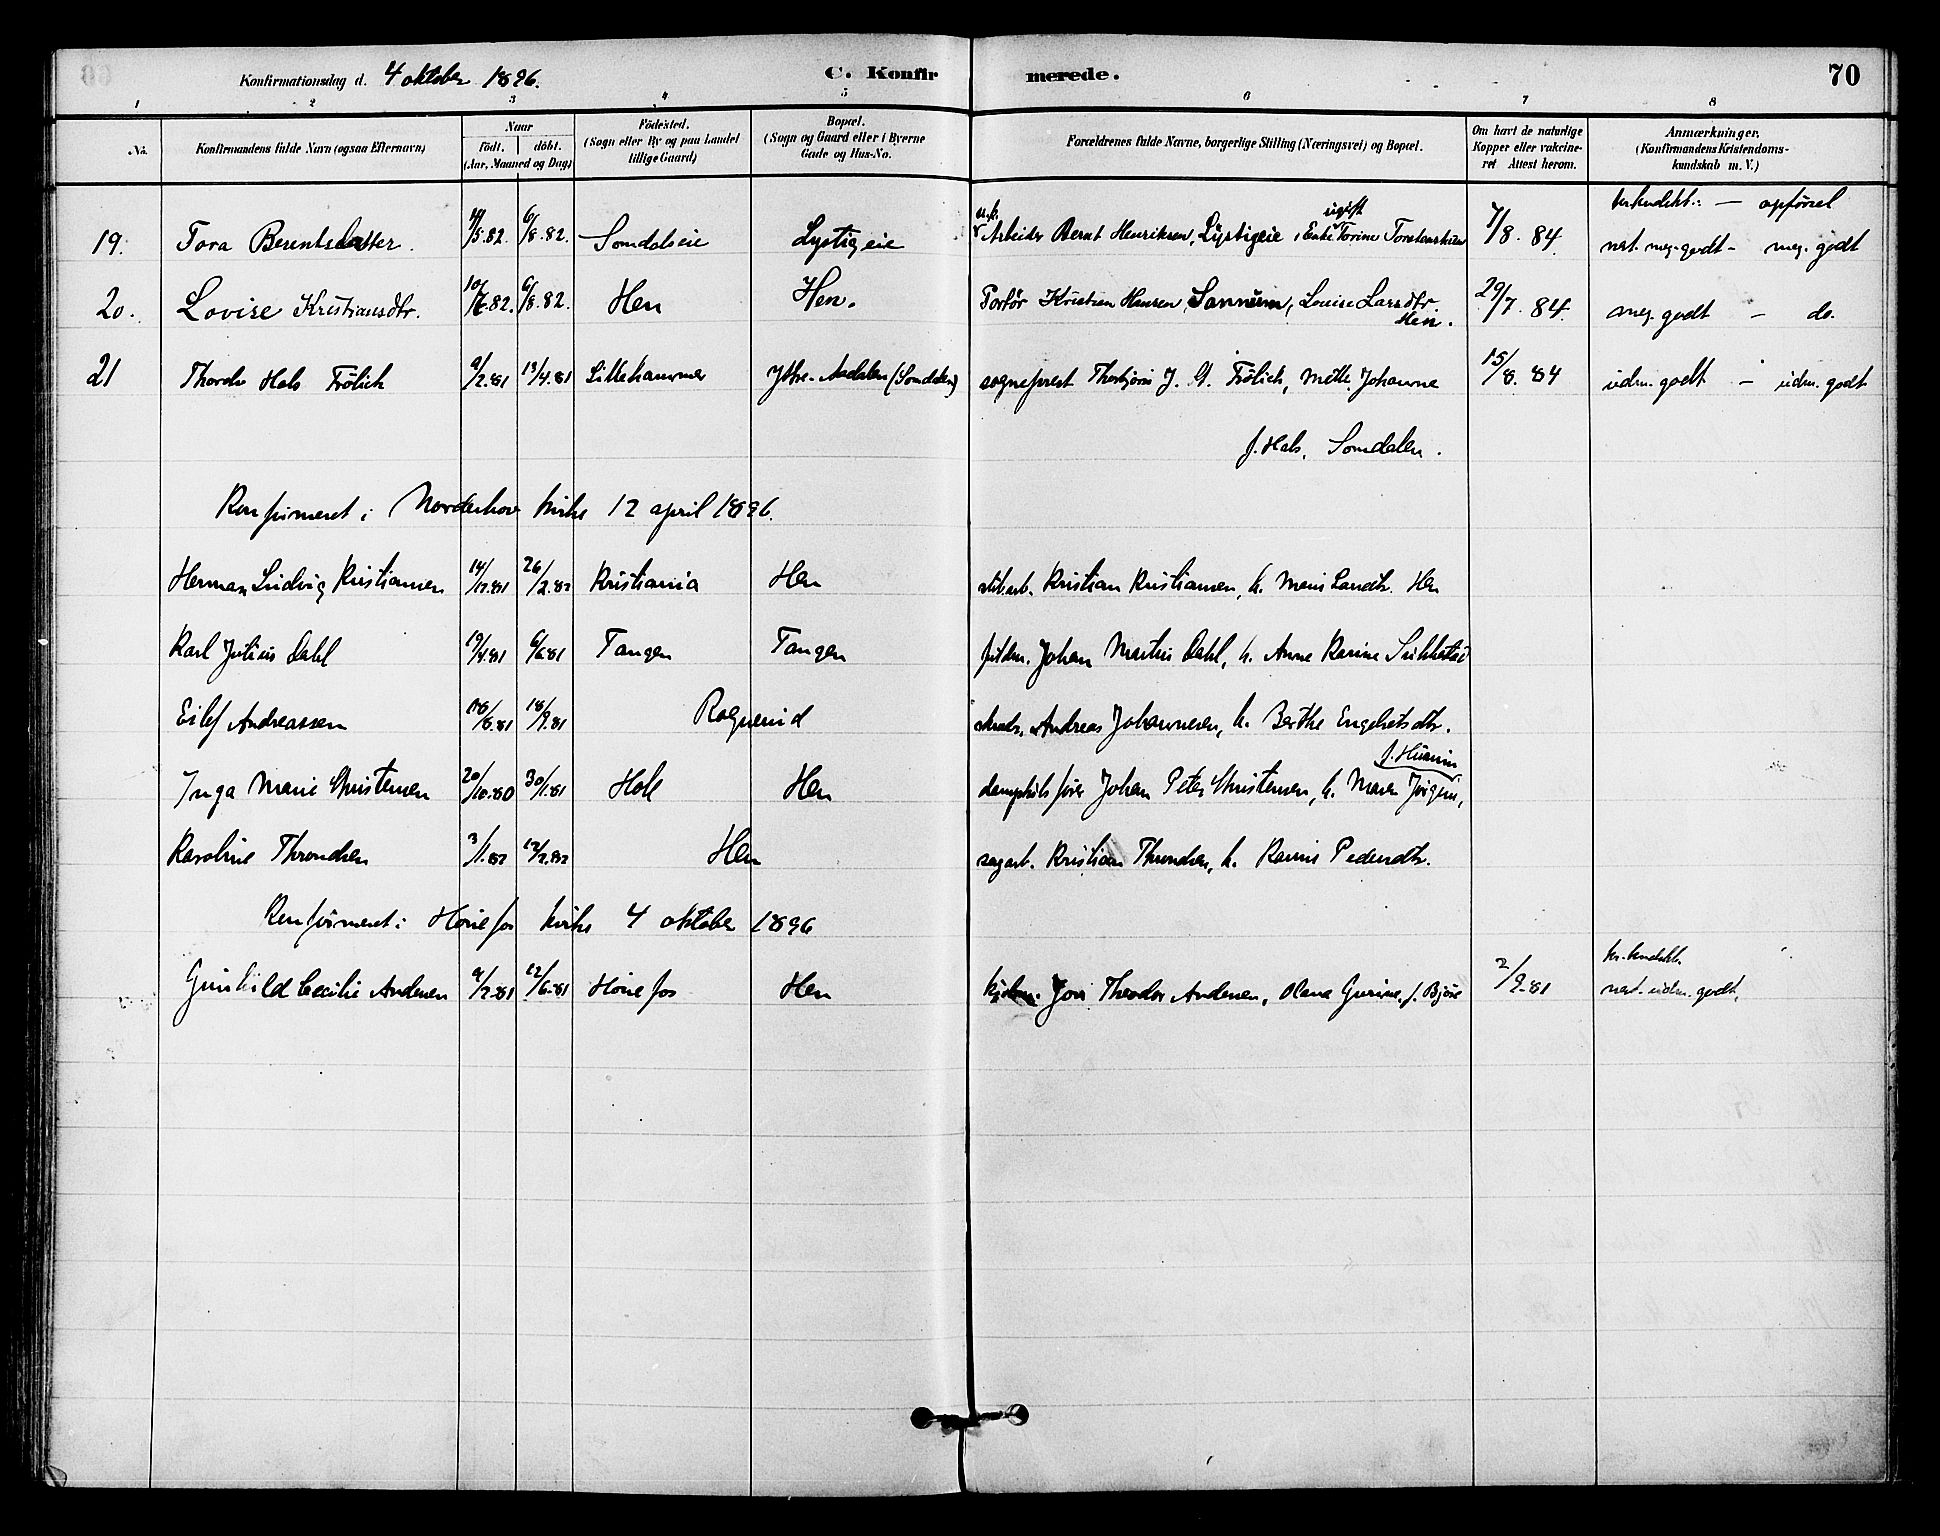 Konfirmationsdag d. 4 oktober 1896. C. Konfir merede. 70
1 2 3 4 5 6 7 8
No. Konfirmandens fulde Navn (ogsaa Efternavn) Naar Födt. döbt. (Aar, Maaned og Dag) Födested. (Sogn eller By og paa Landet tillige Gaard) Bopæl. (Sogn og Gaard eller i Byerne Gade og Hus-No. Forældrenes fulde Navne, borgerlige Stilling (Næringsvei) og Bopæl. Om havt de naturlige Kopper eller vakcineret Attest herom. Anmærkninger. (Konfirmandens Kristendomskundskab m. V.)
kr.kndskb.: — opförsel
19. Tora Berentsdatter. /5.82. 6/8.82. Somdaleie Lystigeie Arbeider Bernt Henriksen, Lystigeie, ugift Enke Torine 7/8.84 nest. meg. godt — meg. godt
20. Lovise Kristiansdtr. 10/6.82. 6/8.82. Hen Hen. Kristian Hansen, Lovise Larsdtr. Hen. 29/7.84. meg. godt — do.
21 Thordr Hals Frölich 9/2.81 13/4.81 Lillehammer Ytre-Aadalen (Somdalen) sogneprest Thorbjörn J. G. Frölich, Mette Johanne 15/8.84 udm. godt — udm. godt
f. Hals, Somdalen.
Konfirmeret i Norderhov kirke 12 april 1896.
Herman Ludvig Kristiansen 14/12.81 26/2.82 Kristiania Hen Kristian Kristiansen, h. Hen
Karl Julius Dahl 19/4.81 6/6.81 Tangen Tangen Johan Martin Dahl, h. Anne Karine
Eilef Andreassen /8.81 18/9.81 Rognerud Andreas Johannesen, h. Berthe Engebretsdtr.
Inga Marie Christensen 20/10.80 30/1.81 Hole Hen dampskibsförer Johan Peter Christensen, h. Maren
Karoline Throndsen 3/1.82 12/2.82 Hen sagarb. Kristian Throndsen, h. Karine Pedersdtr.
Konfirmeret i Hönefos kirke 4 oktober 1896
kr.kndskb.
Gunhild Cecilie Andersen 9/2.81 12/6.81 Hönefos Hen Theodor Andersen, Olava Gurine f. Björe 2/9.81 nest. udm. godt.